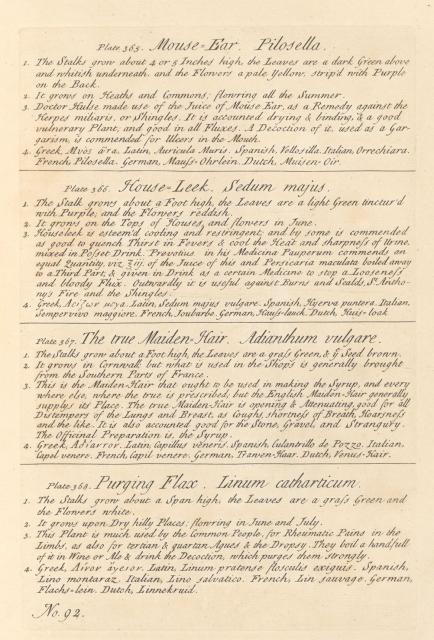 Plate 365. Mouse-Ear. Pilosella.
1. The Stalks grow about 4 or 5 Inches high, the Leaves are a dark Green above
and whitish underneath, and the Flowers a pale Yellow, strip'd with Purple
on the Back.
2. It grows on Heaths and Commons, flowring all the Summer.
3. Doctor Hulse made use of the Juice of Mouse-Ear, as a Remedy against the
Herpes miliaris, or Shingles. It is accounted drying & binding, & a good
vulnerary Plant, and good in all Fluxes. A Decoction of it, used as a Gar-
garism, is commended for Ulcers in the Mouth.
4. Greek, Latin, Auricula Muris. Spanish, Vellosilla. Italian, Orrechiara.
French, Pilosella. German, Mauss-Ohrlein. Dutch, Muisen-Oir.
Plate 366. House-Leek. Sedum majus.
1. The Stalk grows about a Foot high, the Leaves are a light Green tinctur'd
with Purple; and the Flowers reddish.
2. It grows on the Tops of Houses, and flowers in June.
3. Houseleek is esteem'd cooling and restringent; and by some is commended
as good to quench Thirst in Fevers & cool the Heat and sharpness of Urine,
mixed in Posset Drink. Prevotius in his Medicina Pauperum commends an
equal Quantity, viz ℥iij. of the Juice of this and Persicaria maculata boiled away
to a Third Part, & given in Drink as a certain Medicine to stop a Looseness
and bloody Flux. Outwardly it is useful against Burns and Scalds, St. Antho-
ny's Fire and the Shingles.
4. Greek, Latin, Sedum majus vulgare. Spanish, Hyerva puntera. Italian,
Sempervivo maggiore. French, Joubarbe. German, Hauss-lauck. Dutch, Huis-loak
Plate 367. The true Maiden-Hair. Adianthum vulgare.
1. The Stalks grow about a Foot high, the Leaves are a grass Green, & yͤ Seed brown.
2. It grows in Cornwall, but what is used in the Shops is generally brought
from the Southern Parts of France.
3. This is the Maiden-Hair that ought to be used in making the Syrup, and every
where else, where the true is prescribed, but the English Maiden-Hair generally
supplys its Place. The true Maiden-Hair is opening & Attenuating, good for all
Distempers of the Lungs and Breast, as Coughs, shortness of Breath, Hoarsness
and the like. It is also accounted good for the Stone, Gravel, and Strangury.
The Officinal Preparation is the Syrup.
4. Greek, Latin, Capillus veneris. Spanish, Culantrillo de Pozzo. Italian.
Capel venere. French, Capil venere. German, Frawen-Haar. Dutch, Venus-Hair.
Plate 368. Purging Flax. Linum catharticum.
1. The Stalks grow about a Span high, the Leaves are a grass Green and
the Flowers white.
2. It grows upon Dry hilly Places, flowring in June and July.
3. This Plant is much used by the Common People, for Rheumatic Pains in the
Limbs, as also for tertian & quartan Agues & the Dropsy. They boil a handfull
of it in Wine or Ale & drink the Decoction, which purges them strongly.
4. Greek, Latin, Linum pratense flosculis exiguis. Spanish,
Lino montaraz. Italian, Lino salvatico. French, Lin sauvage. German,
Flachs-lein. Dutch, Linnekruid.
No. 92.